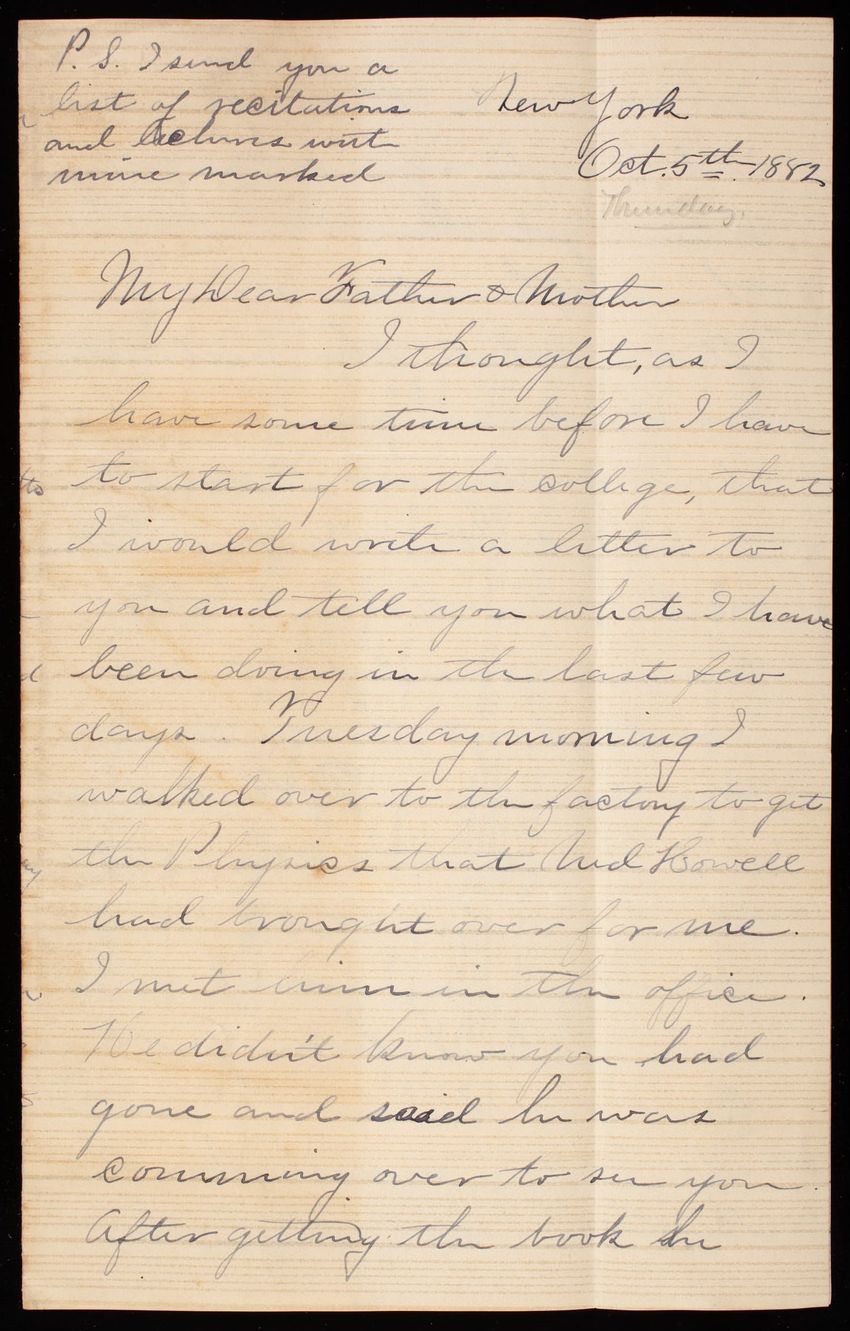 P. S. I send you a
list of recitations
and lectures with
mine marked
New York
Oct. 5th. 1882
Thursday.
My Dear Father & Mother
I thought, as I
have some time before I have
to start for the college, that
I would write a letter to
you and tell you what I have
been doing in the last few
days. Tuesday morning I
walked over to the factory to get
the Physics that Ned Howell
had brought over for me.
I met him in the office.
He didn't know you had
gone and said he was
comming over to see you.
After getting the book he